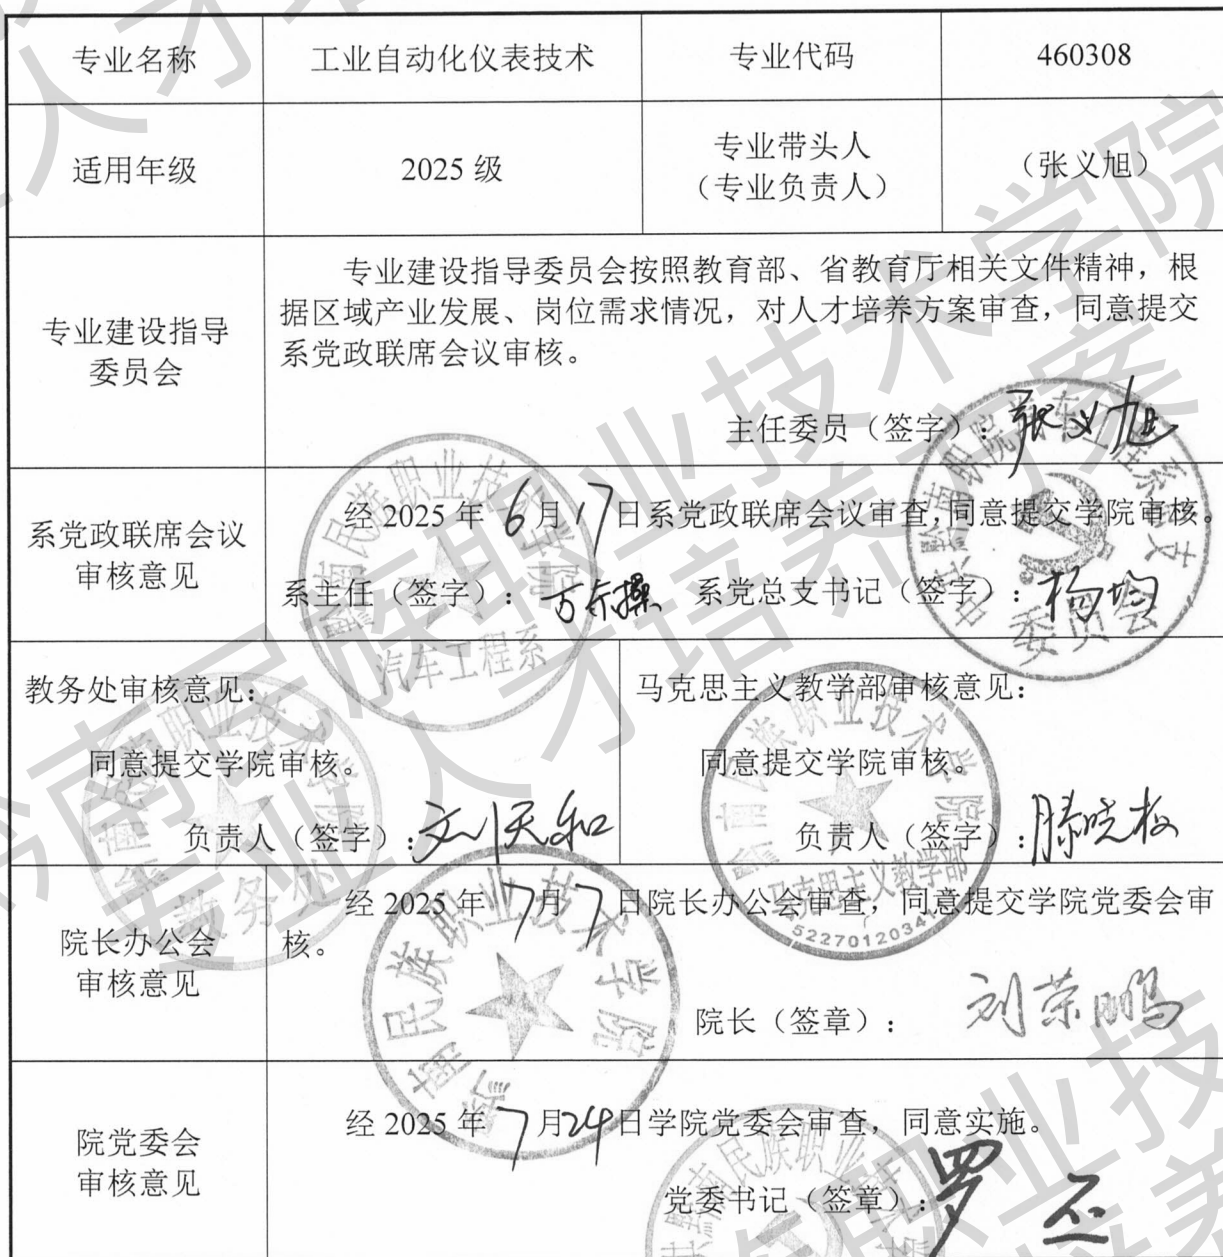 专业名称 工业自动化仪表技术 专业代码 460308
适用年级 2025 级 专业带头人
（专业负责人） （张义旭）
专业建设指导
委员会
专业建设指导委员会按照教育部、省教育厅相关文件精神，根
据区域产业发展、岗位需求情况，对人才培养方案审查，同意提交
系党政联席会议审核。
主任委员（签字）：张义旭
系党政联席会议
审核意见
经 2025 年 6 月 17 日系党政联席会议审查，同意提交学院审核。
系主任（签字）： 系党总支书记（签字）：杨均
汽车工程系
委员会
教务处审核意见：
同意提交学院审核。
负责人（签字）：
教务处
马克思主义教学部审核意见：
同意提交学院审核。
负责人（签字）：滕晓板
黔南民族职业技术学院
马克思主义教学部
院长办公会
审核意见
经 2025 年 7 月 7 日院长办公会审查，同意提交学院党委会审
核。
院长（签章）：刘荣鹏
黔南民族职业技术学院
院党委会
审核意见
经 2025 年 7 月 24 日学院党委会审查，同意实施。
党委书记（签章）：罗丕
黔南民族职业技术学院
专业人才培养方案